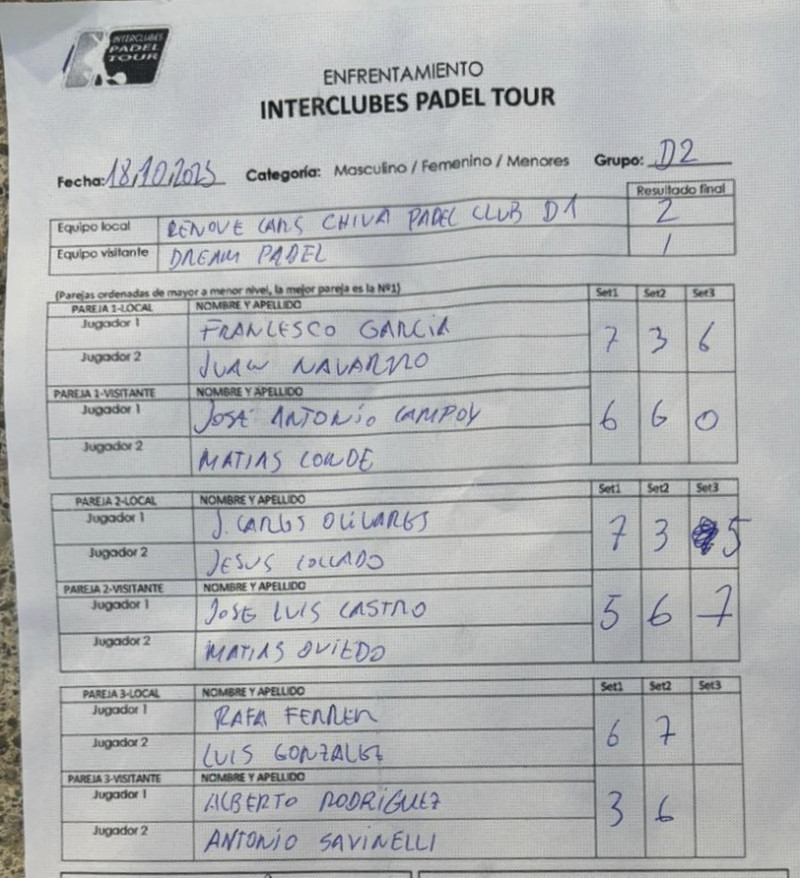 INTERCLUBES
PADEL
TOUR
ENFRENTAMIENTO
INTERCLUBES PADEL TOUR
Fecha: 18/10/2025 Categoría: Masculino / Femenino / Menores Grupo: D2
Resultado final
Equipo local RENOVE CARS CHIVA PADEL CLUB D1 2
Equipo visitante DREAM PADEL 1
(Parejas ordenadas de mayor a menor nivel, la mejor pareja es la Nº1) Set1 Set2 Set3
PAREJA 1-LOCAL NOMBRE Y APELLIDO
Jugador 1 FRANCESCO GARCIA 7 3 6
Jugador 2 JUAN NAVARRO
PAREJA 1-VISITANTE NOMBRE Y APELLIDO
Jugador 1 JOSE ANTONIO CAMPOY 6 6 0
Jugador 2 MATIAS CONDE
Set1 Set2 Set3
PAREJA 2-LOCAL NOMBRE Y APELLIDO
Jugador 1 J. CARLOS OLIVARES 7 3 5
Jugador 2 JESUS COLLADO
PAREJA 2-VISITANTE NOMBRE Y APELLIDO
Jugador 1 JOSE LUIS CASTRO 5 6 7
Jugador 2 MATIAS OVIEDO
Set1 Set2 Set3
PAREJA 3-LOCAL NOMBRE Y APELLIDO
Jugador 1 RAFA FERRER 6 7
Jugador 2 LUIS GONZALEZ
PAREJA 3-VISITANTE NOMBRE Y APELLIDO
Jugador 1 ALBERTO RODRIGUEZ 3 6
Jugador 2 ANTONIO SAVINELLI